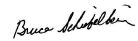 Bruce Schiefelbein